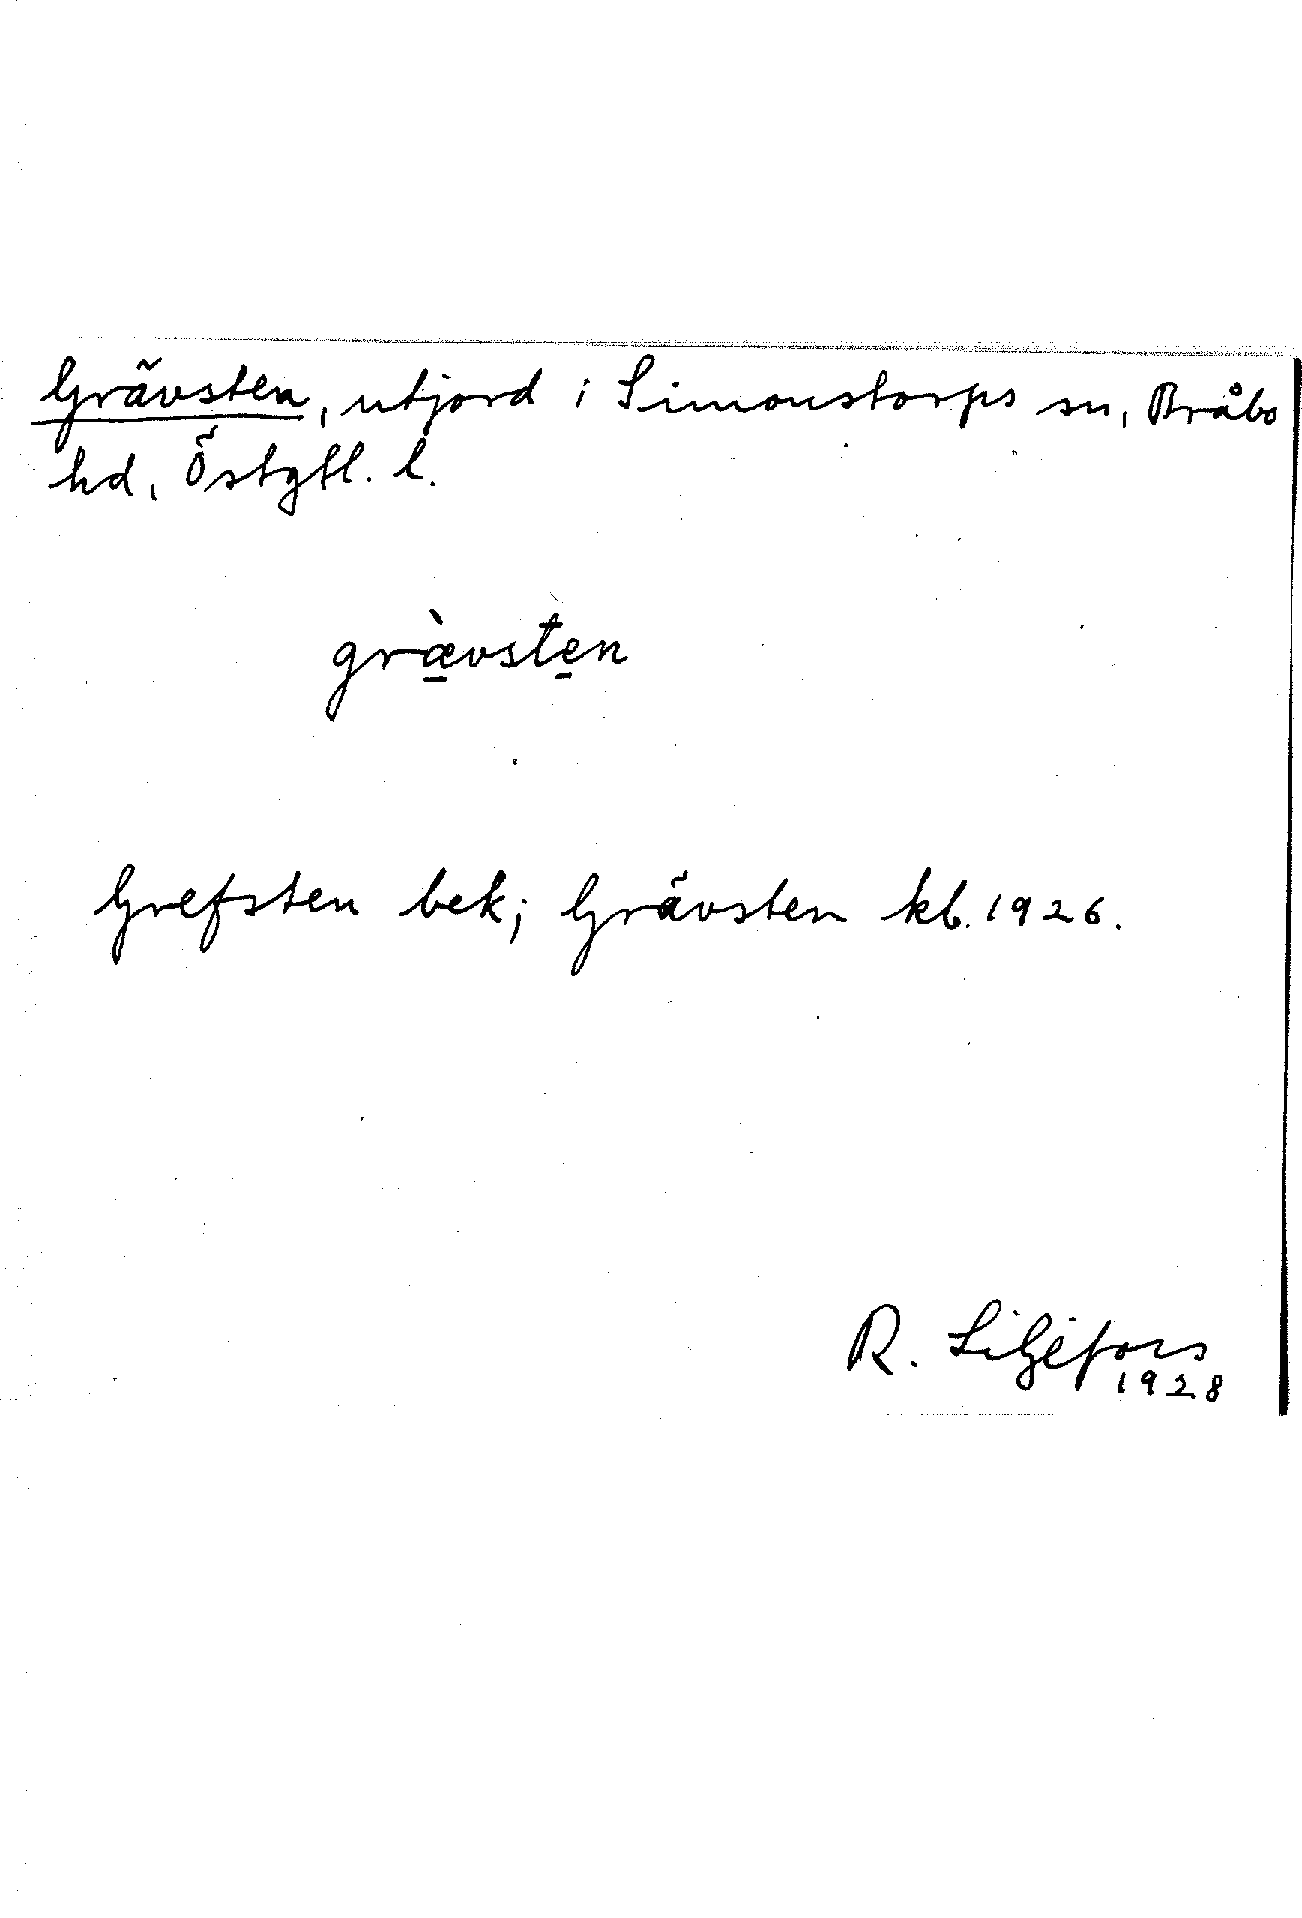 Grävsten, utjord i Simonstorps sn, Bråbo
hd, Östgtl. l.
græ̀vsten
Grefsten bek; Grävsten kb. 1926.
R. Liljefors
1928